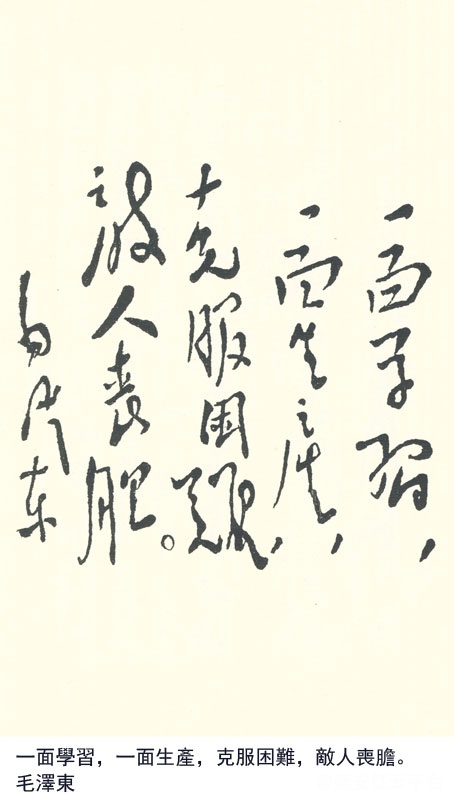 一面学習，
一面生産，
克服困難，
敵人喪胆。
毛泽东
一面學習，一面生產，克服困難，敵人喪膽。
毛澤東